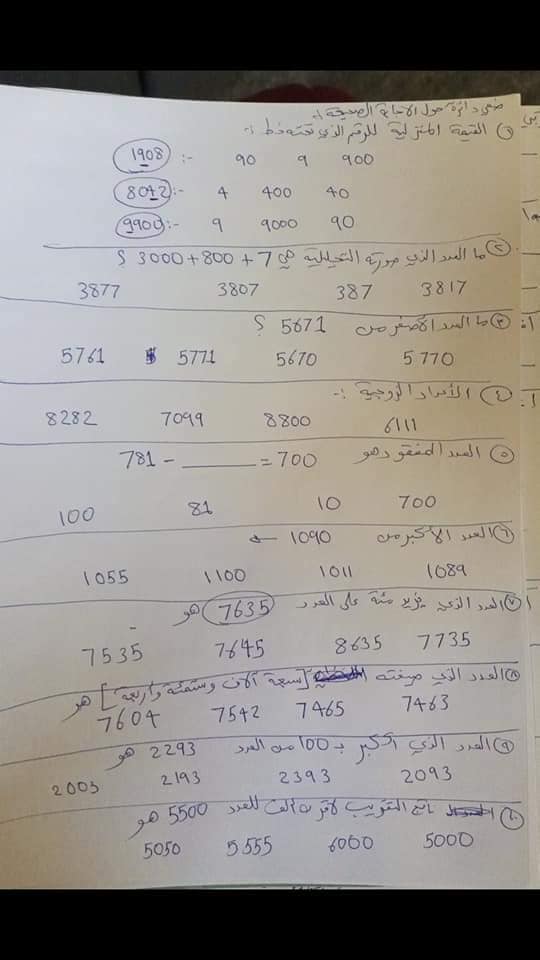 ضعي دائرة حول الاجابة الصحيحة :-
① القيمة المنزلية للرقم الذي تحته خط :-
1908 :- 90 9 900
8042 :- 4 400 40
9900 :- 9 9000 90
② ما العدد الذي صورته التحليلية هي 7 + 800 + 3000 ؟
3877 3807 387 3817
③ ما العدد الأصغر من 5671 ؟
5761 5771 5670 5770
④ الأعداد الزوجية :-
8282 7099 8800 6111
⑤ العدد المفقود هو 781 - ____ = 700
100 81 10 700
⑥ العدد الأكبر من 1090
1055 1100 1011 1089
⑦ العدد الذي يزيد مئة على العدد 7635 هو
7535 7645 8635 7735
⑧ العدد الذي صيغته [سبعة آلاف وستمئة واربعة] هو
7604 7542 7465 7463
⑨ العدد الذي أكبر بـ 100 من العدد 2293 هو
2003 2193 2393 2093
⑩ ناتج التقريب لأقرب ألف للعدد 5500 هو
5050 5555 6000 5000